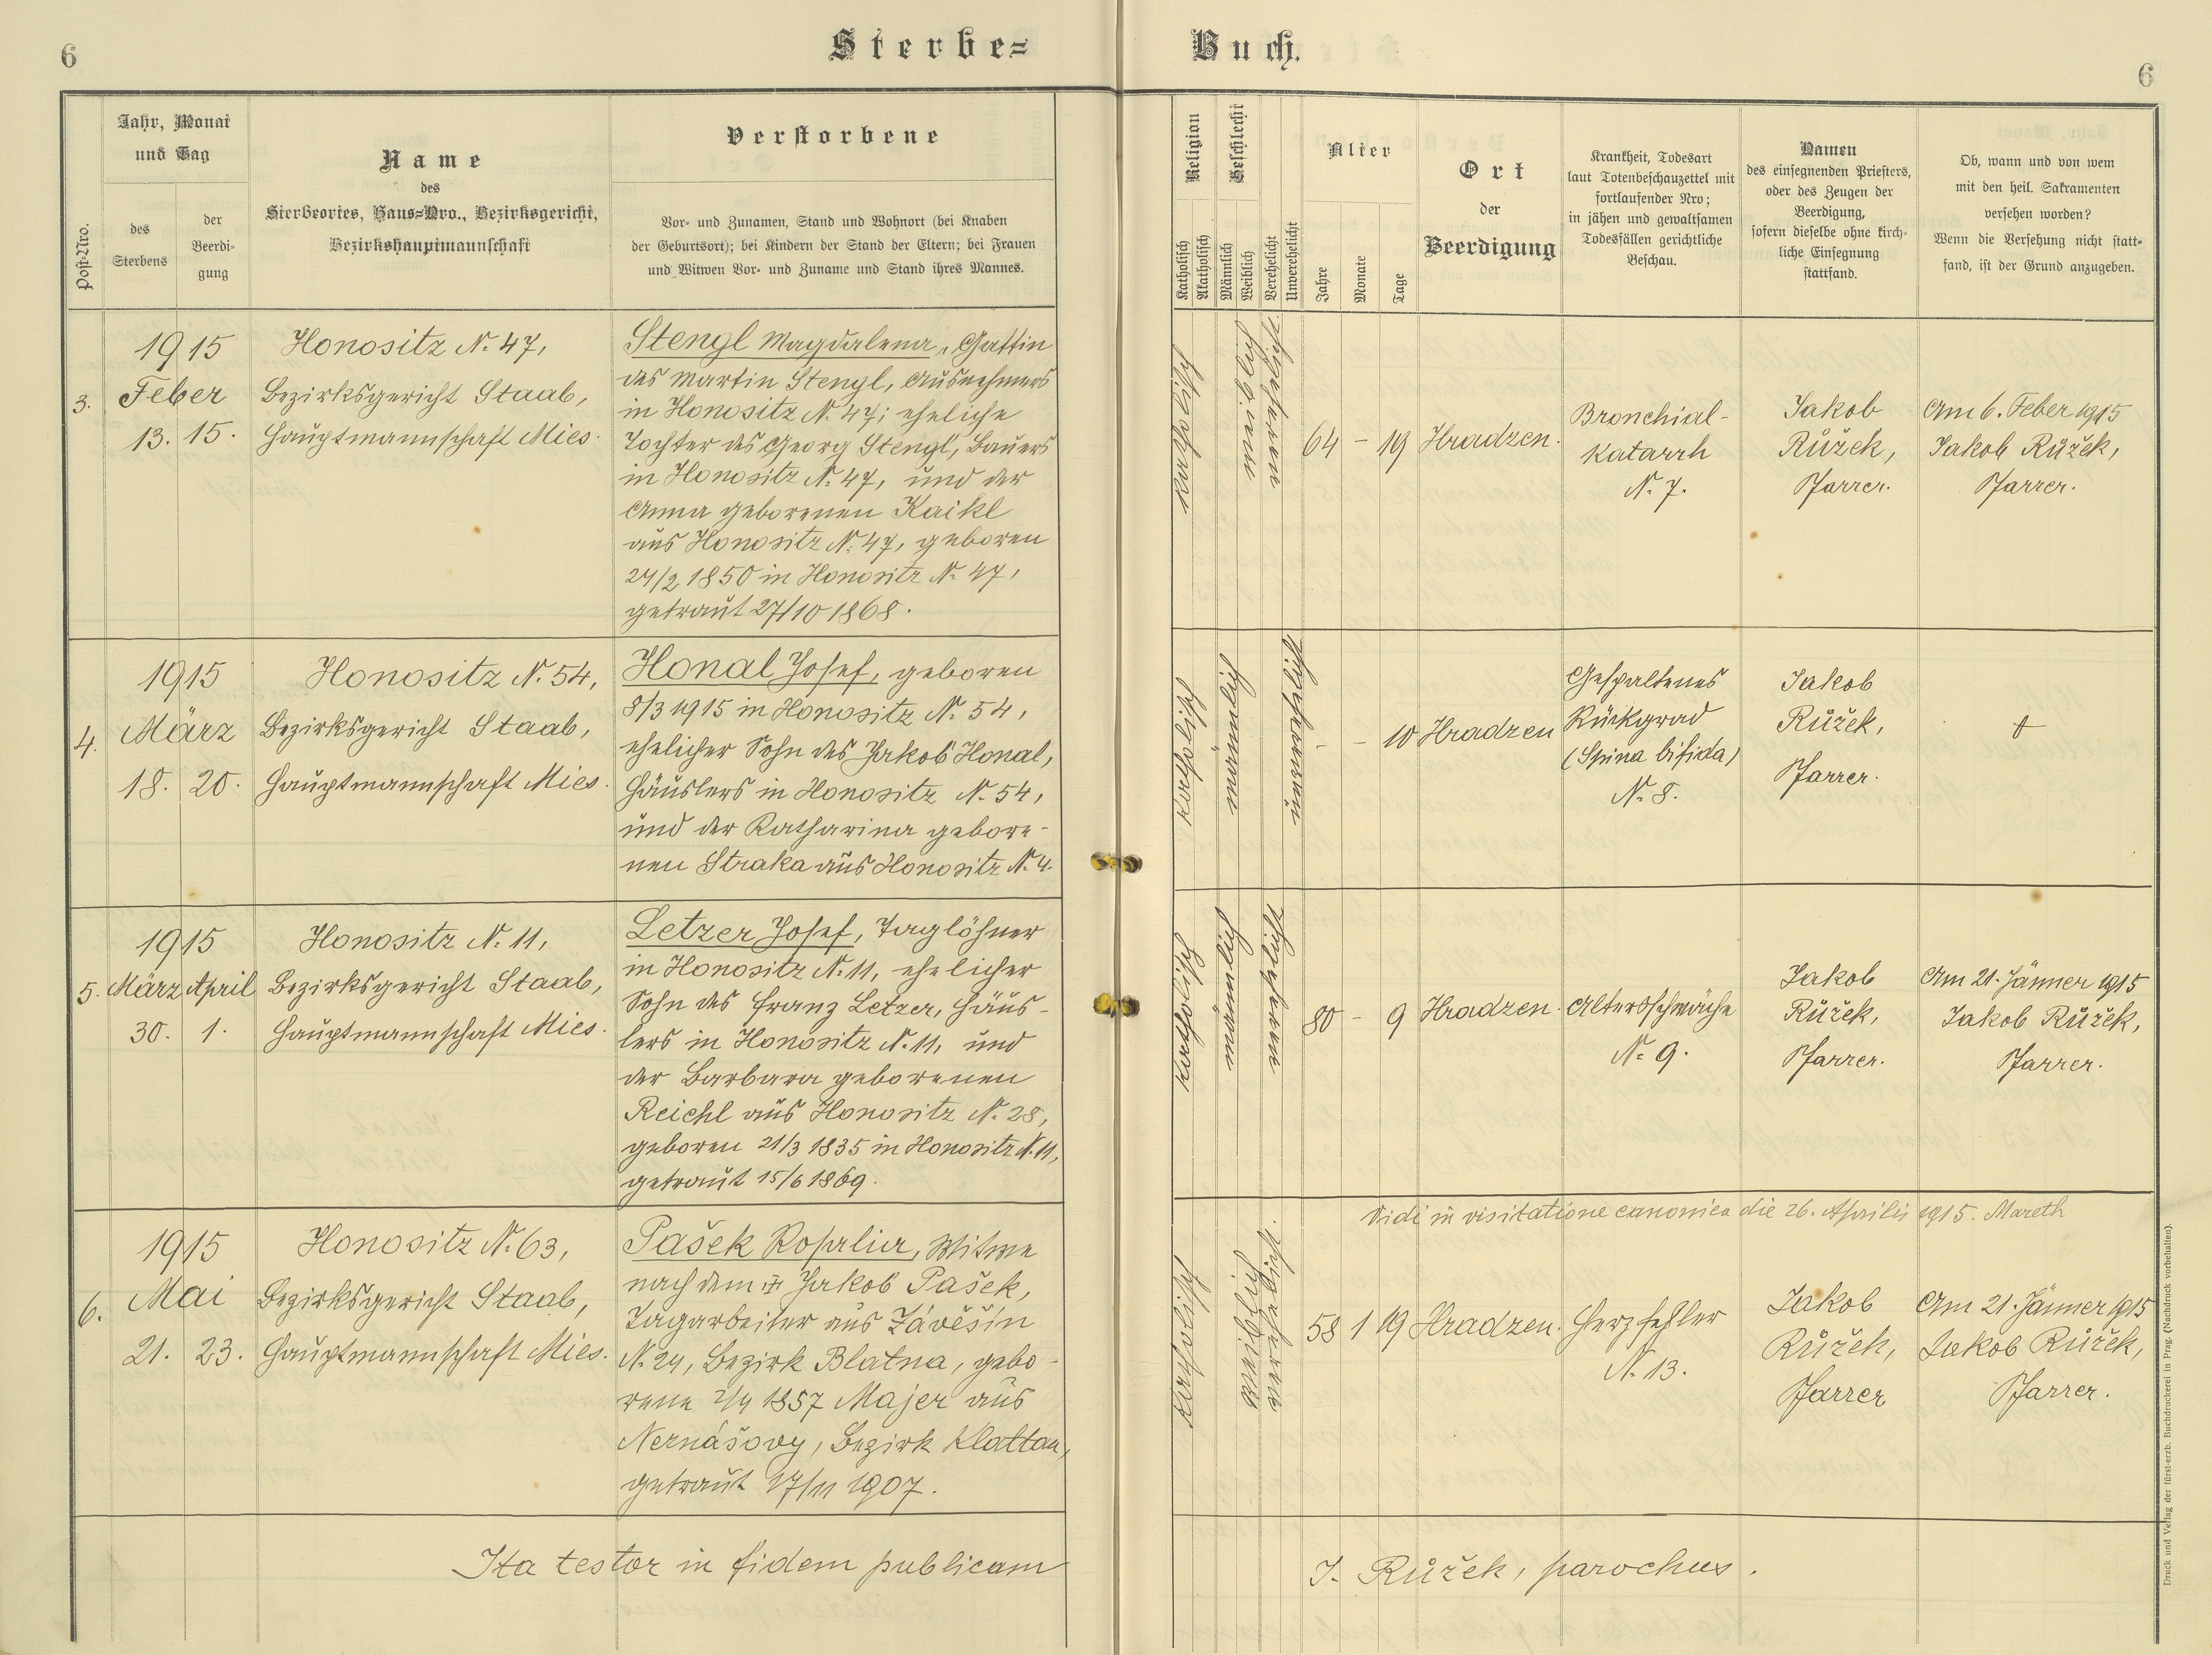 6
Sterbe=
Buch.
6
Post-Nro.
Jahr, Monat
und Tag
des
Sterbens
der
Beerdi-
gung
Name
des
Sterbeortes, Haus=Nro., Bezirksgericht,
Bezirkshauptmannschaft
Verstorbene
Vor- und Zunamen, Stand und Wohnort (bei Knaben
der Geburtsort); bei Kindern der Stand der Eltern; bei Frauen
und Witwen Vor- und Zuname und Stand ihres Mannes.
Religion
Katholisch
Akatholisch
Geschlecht
Männlich
Weiblich
Verehelicht
Unverehelicht
Alter
Jahre
Monate
Tage
Ort
der
Beerdigung
Krankheit, Todesart
laut Totenbeschauzettel mit
fortlaufender Nro;
in jähen und gewaltsamen
Todesfällen gerichtliche
Beschau.
Namen
des einsegnenden Priesters,
oder des Zeugen der
Beerdigung,
sofern dieselbe ohne kirch-
liche Einsegnung
stattfand.
Ob, wann und von wem
mit den heil. Sakramenten
versehen worden?
Wenn die Versehung nicht statt-
fand, ist der Grund anzugeben.
3.
1915
Feber
13. 15.
Honositz N. 47,
Bezirksgericht Staab,
Hauptmannschaft Mies.
Stengl Magdalena, Gattin
des Martin Stengl, Ausnehmers
in Honositz N. 47; eheliche
Tochter des Georg Stengl, Bauers
in Honositz N. 47, und der
Anna geborenen Kaikl
aus Honositz N. 47, geboren
24/2 1850 in Honositz N. 47,
getraut 27/10 1868.
katholisch
weiblich
verehelicht
64 - 19
Hradzen.
Bronchial-
katarrh
N. 7.
Jakob
Růžek,
Pfarrer.
Am 6. Feber 1915
Jakob Růžek,
Pfarrer.
4.
1915
März
18. 20.
Honositz N. 54,
Bezirksgericht Staab,
Hauptmannschaft Mies.
Honal Josef, geboren
8/3 1915 in Honositz N. 54,
ehelicher Sohn des Jakob Honal,
Häuslers in Honositz N. 54,
und der Katharina gebore-
nen Straka aus Honositz N. 4.
katholisch
männlich
unverehelicht
- - 10
Hradzen
Gespaltenes
Rückgrad
(Spina bifida)
N. 8.
Jakob
Růžek,
Pfarrer.
5.
1915
März April
30. 1.
Honositz N. 11,
Bezirksgericht Staab,
Hauptmannschaft Mies.
Letzer Josef, Taglöhner
in Honositz N. 11, ehelicher
Sohn des Franz Letzer, Häus-
lers in Honositz N. 11, und
der Barbara geborenen
Reichl aus Honositz N. 28,
geboren 21/3 1835 in Honositz N. 11,
getraut 15/6 1869.
katholisch
männlich
verehelicht
80 - 9
Hradzen.
Altersschwäche
N. 9.
Jakob
Růžek,
Pfarrer.
Am 21. Jänner 1915
Jakob Růžek,
Pfarrer.
Vidi in visitatione canonica die 26. Aprilis 1915. Mareth
6.
1915
Mai
21. 23.
Honositz N. 63,
Bezirksgericht Staab,
Hauptmannschaft Mies.
Pašek Rosalia, Witwe
nach dem Jakob Pašek,
Tagarbeiter aus Závěšín
N. 24, Bezirk Blatna, gebo-
rene 2/4 1857 Majer aus
Nernášovy, Bezirk Klattau,
getraut 17/11 1907.
katholisch
weiblich
verehelicht.
58 1 19
Hradzen.
Herzfehler
N. 13.
Jakob
Růžek,
Pfarrer
Am 21. Jänner 1915
Jakob Růžek,
Pfarrer.
Ita testor in fidem publicam
J. Růžek, parochus.
Druck und Verlag der fürst-erzb. Buchdruckerei in Prag. (Nachdruck vorbehalten).